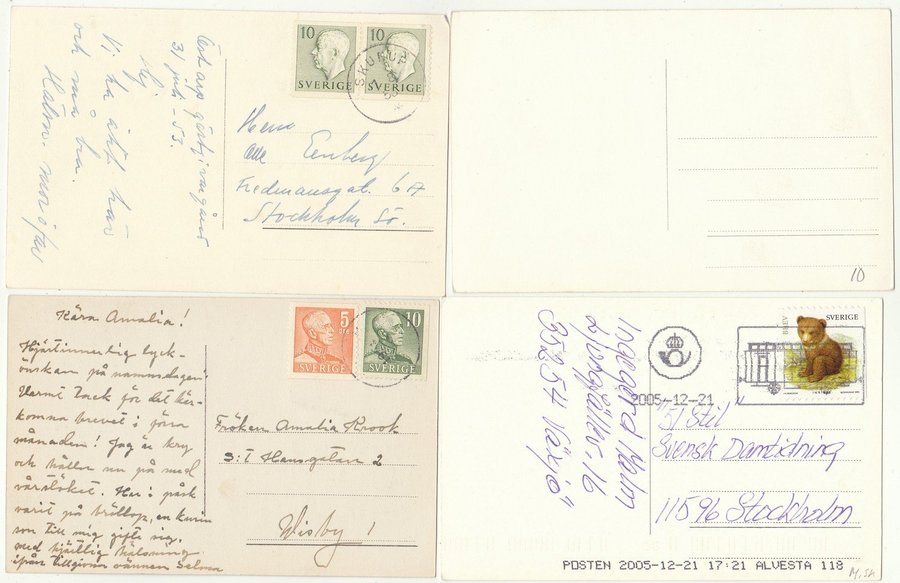 10
10
SVERIGE
SVERIGE
SKURUP
31 juli -53.
Vi ha ätit här
och må bra.
Herr
Enberg
Fredmansgat. 6A
Stockholm Sö.
10
Kära Amalia!
Hjärtinnerlig lyck-
önskan på namnsdagen.
Varmt tack för det kär-
komna brevet i förra
månaden! Jag är kry
och håller nu på med
vårstöket. Har i påsk
varit på bröllop, en kusin
son till mig gifte sig.
med hjärtlig hälsning
ifrån tillgivna vännen Selma
5
ÖRE
SVERIGE
10
SVERIGE
Fröken Amalia Krook
S:t Hansgatan 2
Wisby!
Ingegerd Malm
16
352 54 Växjö
BREV
SVERIGE
2005-12-21
"51 Stil"
Svensk Damtidning
11596 Stockholm
POSTEN 2005-12-21 17:21 ALVESTA 118
M, sk